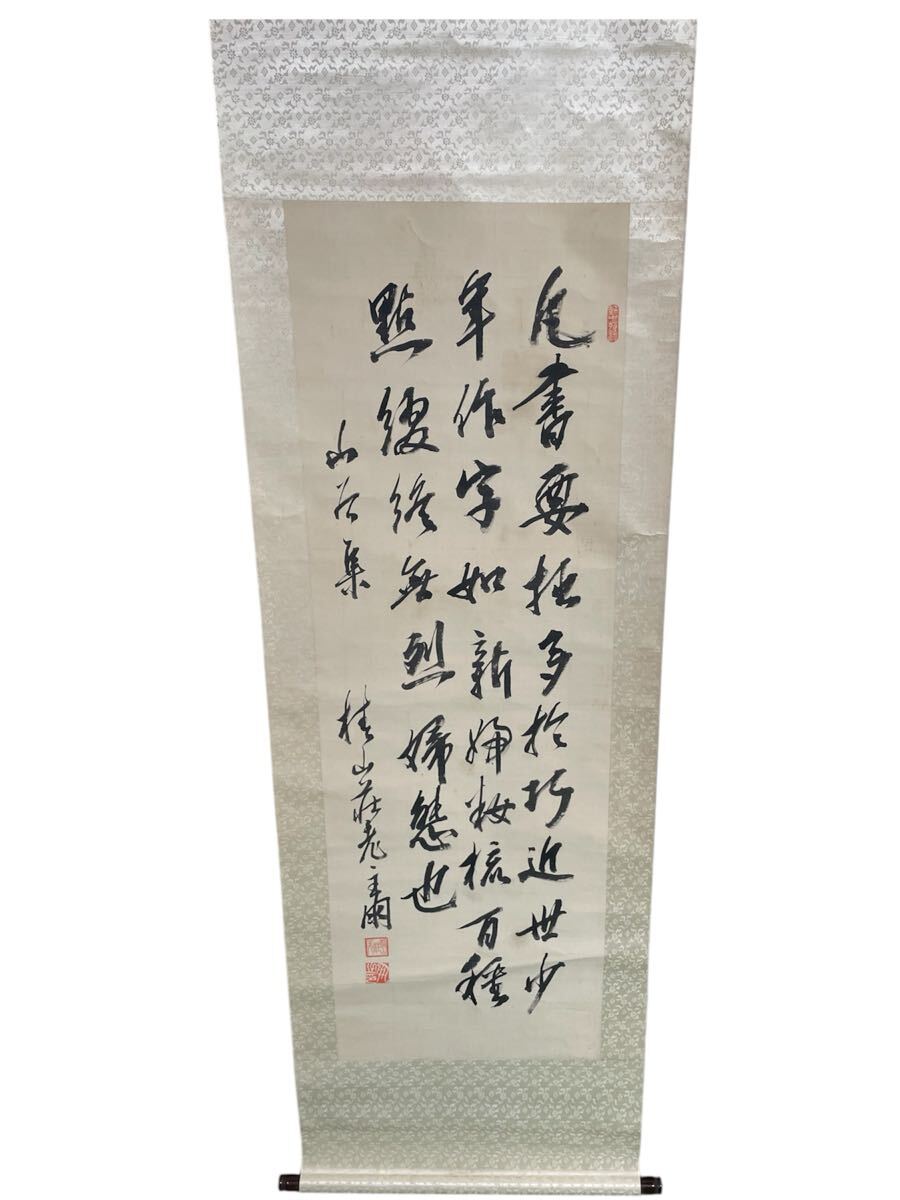 凡書要拙多於巧近世少
年作字如新婦妝梳百種
點綴終無烈婦態也
山谷集
桂山莊老主